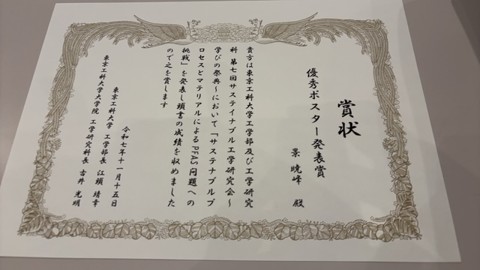 賞状
優秀ポスター発表賞
景 暁峰 殿
貴方は東京工科大学工学部及び工学研究
科 第七回サステイナブル工学研究会〜
学びの祭典〜において「サステナブルプ
ロセスとマテリアルによるPFAS問題への
挑戦」を発表し頭書の成績を収めました
ので之を賞します
令和七年十一月十五日
東京工科大学 工学部長 江頭 靖幸
東京工科大学大学院 工学研究科長 吉井 光明